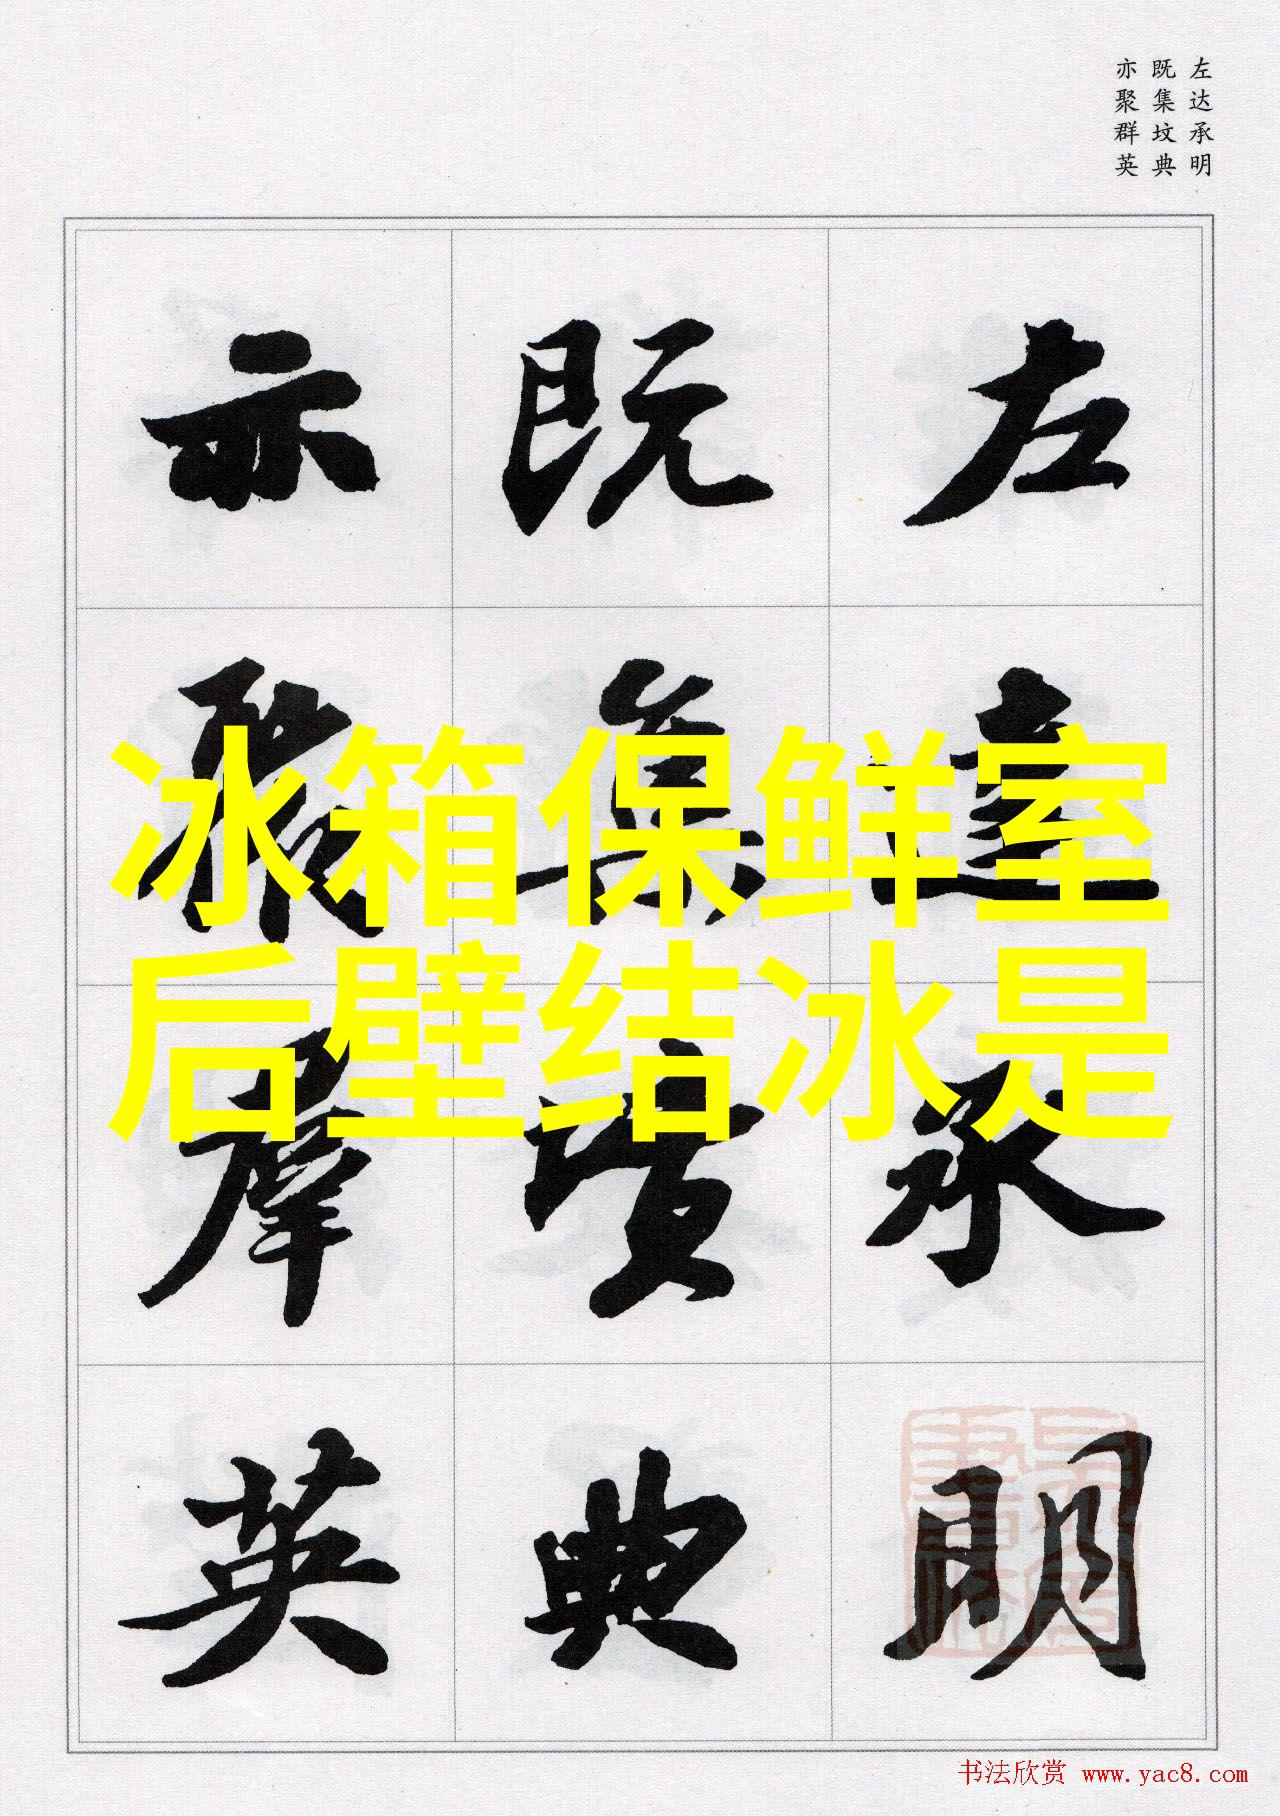 左达承明
既集坟典
亦聚群英
左達承明
既集墳典
亦聚群英
冰箱保鲜室
后壁结冰是
书法欣赏 www.yac8.com